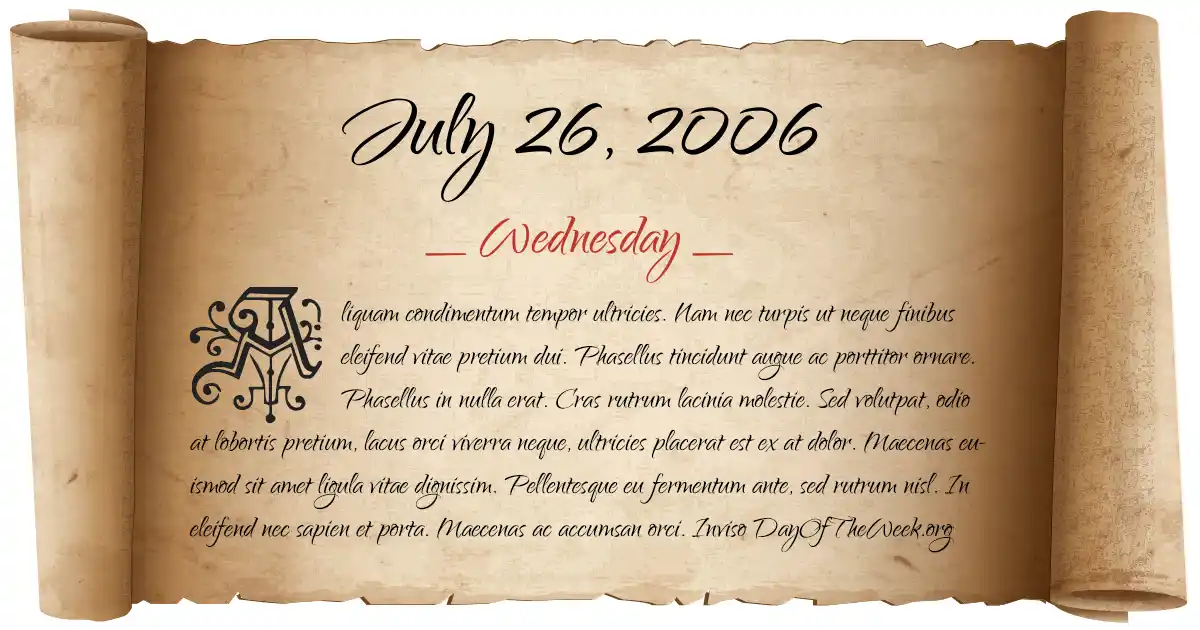 July 26, 2006
Wednesday
Aliquam condimentum tempor ultricies. Nam nec turpis ut neque finibus
eleifend vitae pretium dui. Phasellus tincidunt augue ac porttitor ornare.
Phasellus in nulla erat. Cras rutrum lacinia molestie. Sed volutpat, odio
at lobortis pretium, lacus orci viverra neque, ultricies placerat est ex at dolor. Maecenas eu-
ismod sit amet ligula vitae dignissim. Pellentesque eu fermentum ante, sed rutrum nisl. In
eleifend nec sapien et porta. Maecenas ac accumsan orci. Inviso DayOfTheWeek.org